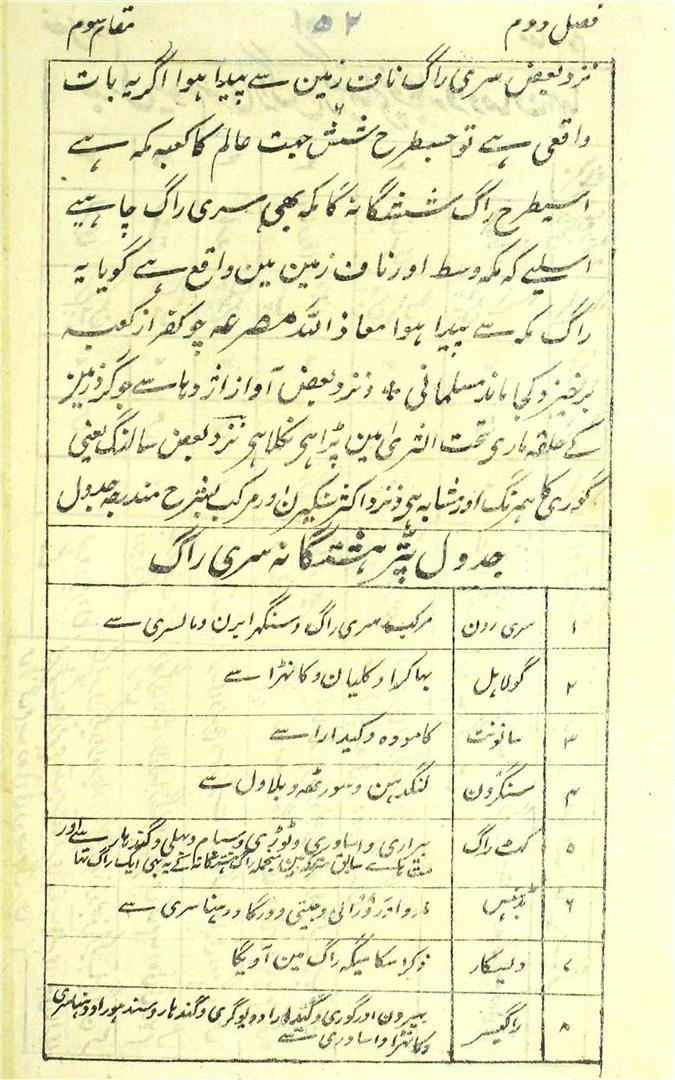 فصل دوم
۱۵۲
مقام سوم
نزد بعض سری راگ ناف زمین سے پیدا ہوا اگر یہ بات
واقعی ہے تو جسطرح شش جہت عالم کا کعبہ مکہ ہے
اسیطرح راگ ششگانہ کا مکہ بھی سری راگ چاہیے
اسلیے کہ مکہ وسط اور ناف زمین مین واقع ہے گویا یہ
راگ مکہ سے پیدا ہوا معاذ اللہ مصرعہ چو کفر از کعبہ
برخیزد کجا ماند مسلمانی * ونزد بعض آواز اژدہا سے جو گرد زمین
کے حلقہ مارے تحت الثریٰ مین پڑا ہی نکلا ہی نزد بعض سالنگ یعنی
گوری کا ہمرنگ اور مشابہ ہی ونزد اکثر سنکیرن اور مرکب بشرح مندرجہ جدول
جدول پتر ہشتگانہ سری راگ
۱ سری رون مرکب سری راگ و سنگہرابرن ومالسری سے
۲ گولاہل بہاگرا و کلیان و کانہڑا سے
۳ سانونت کامودہ و کیدارا سے
۴ سنگرون گندہن و سورٹھہ و بلاول سے
۵ کہٹ راگ براری و اساوری و ٹوڑی و سیام و بہلی و گندہار سے اور
سابق مین منجملہ راگ ہشتگانہ کے یہ بھی ایک راگ تہا
۶ بڈہنس مارو اور و جیتی و درگا و دہناسری سے
۷ دیسکار ذکر اسکا میگہ راگ مین آویگا
۸ راگیسر بہیرون اور گوری و کیدارا و دیوگری و گندہار و سندہورا و دہناسری
و کانہڑا و اساوری سے